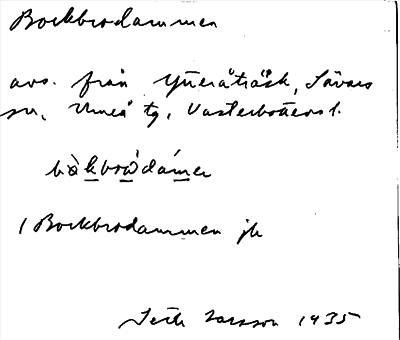 Bockbrodammen
avs. från Ytteråträsk, Sävars
sn, Umeå tg, Västerbottens l.
bòkbrωdám̲er
1 Bockbrodammen jb
Seth Larsson 1935